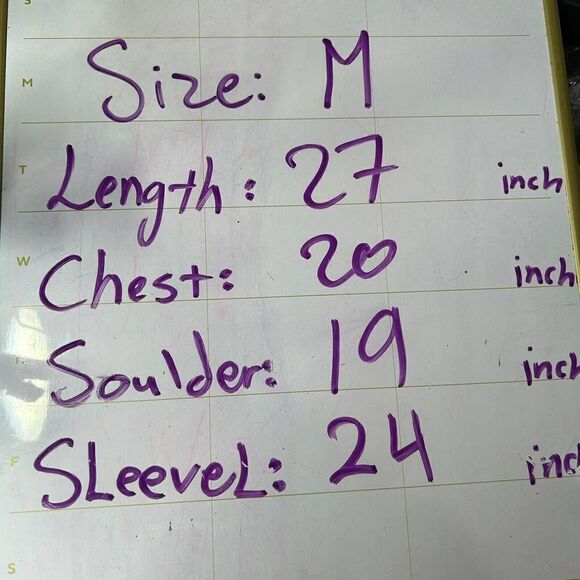 S
M Size: M
T Length: 27 inch
W Chest: 20 inch
Soulder: 19 inch
F SLeeveL: 24 inch
S